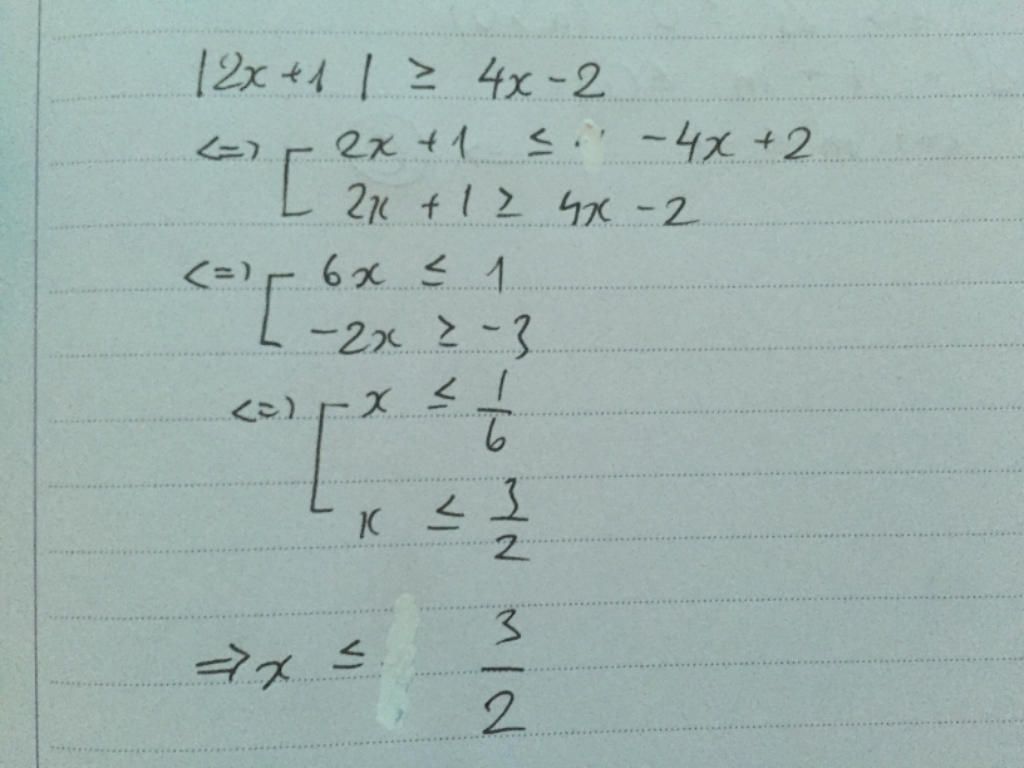 |2x+1| ≥ 4x-2
<=> [ 2x+1 ≤ -4x+2
2x+1 ≥ 4x-2
<=> [ 6x ≤ 1
-2x ≥ -3
<=> [ x ≤ 1/6
x ≤ 3/2
=> x ≤ 3/2